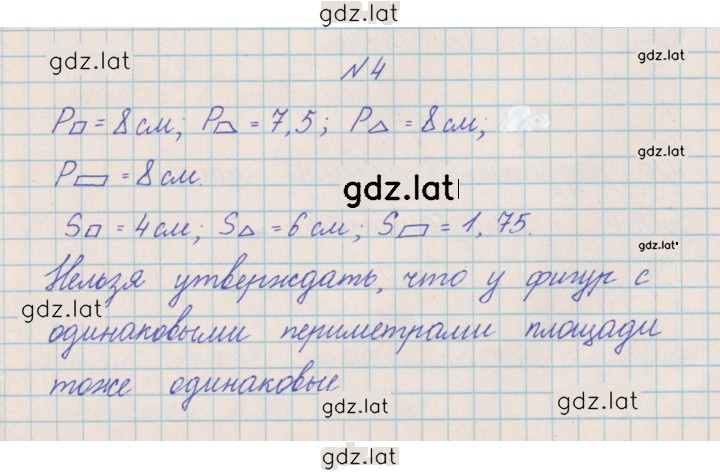 gdz.lat
gdz.lat
gdz.lat
N 4
P□ = 8 см; P⏢ = 7,5; P△ = 8 см;
P▭ = 8 см.
gdz.lat
S□ = 4 см; S△ = 6 см; S▭ = 1,75.
gdz.lat
Нельзя утверждать, что у фигур с
gdz.lat
одинаковыми периметрами площади
тоже одинаковые
gdz.lat
gdz.lat
gdz.lat